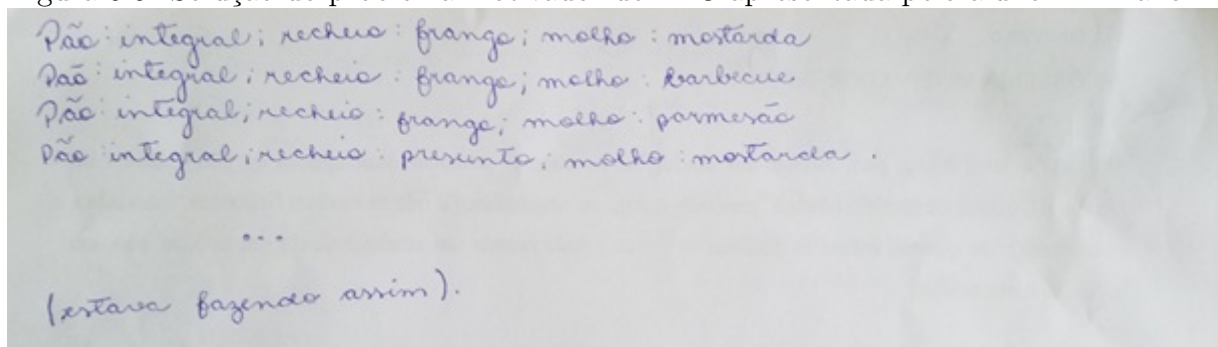 Pão: integral; recheio: frango; molho: mostarda
Paõ: integral; recheio: frango; molho: barbecue
Pão: integral; recheio: frango; molho: parmesão
Pão integral; recheio: presunto; molho: mostarda.
...
(estava fazendo assim).